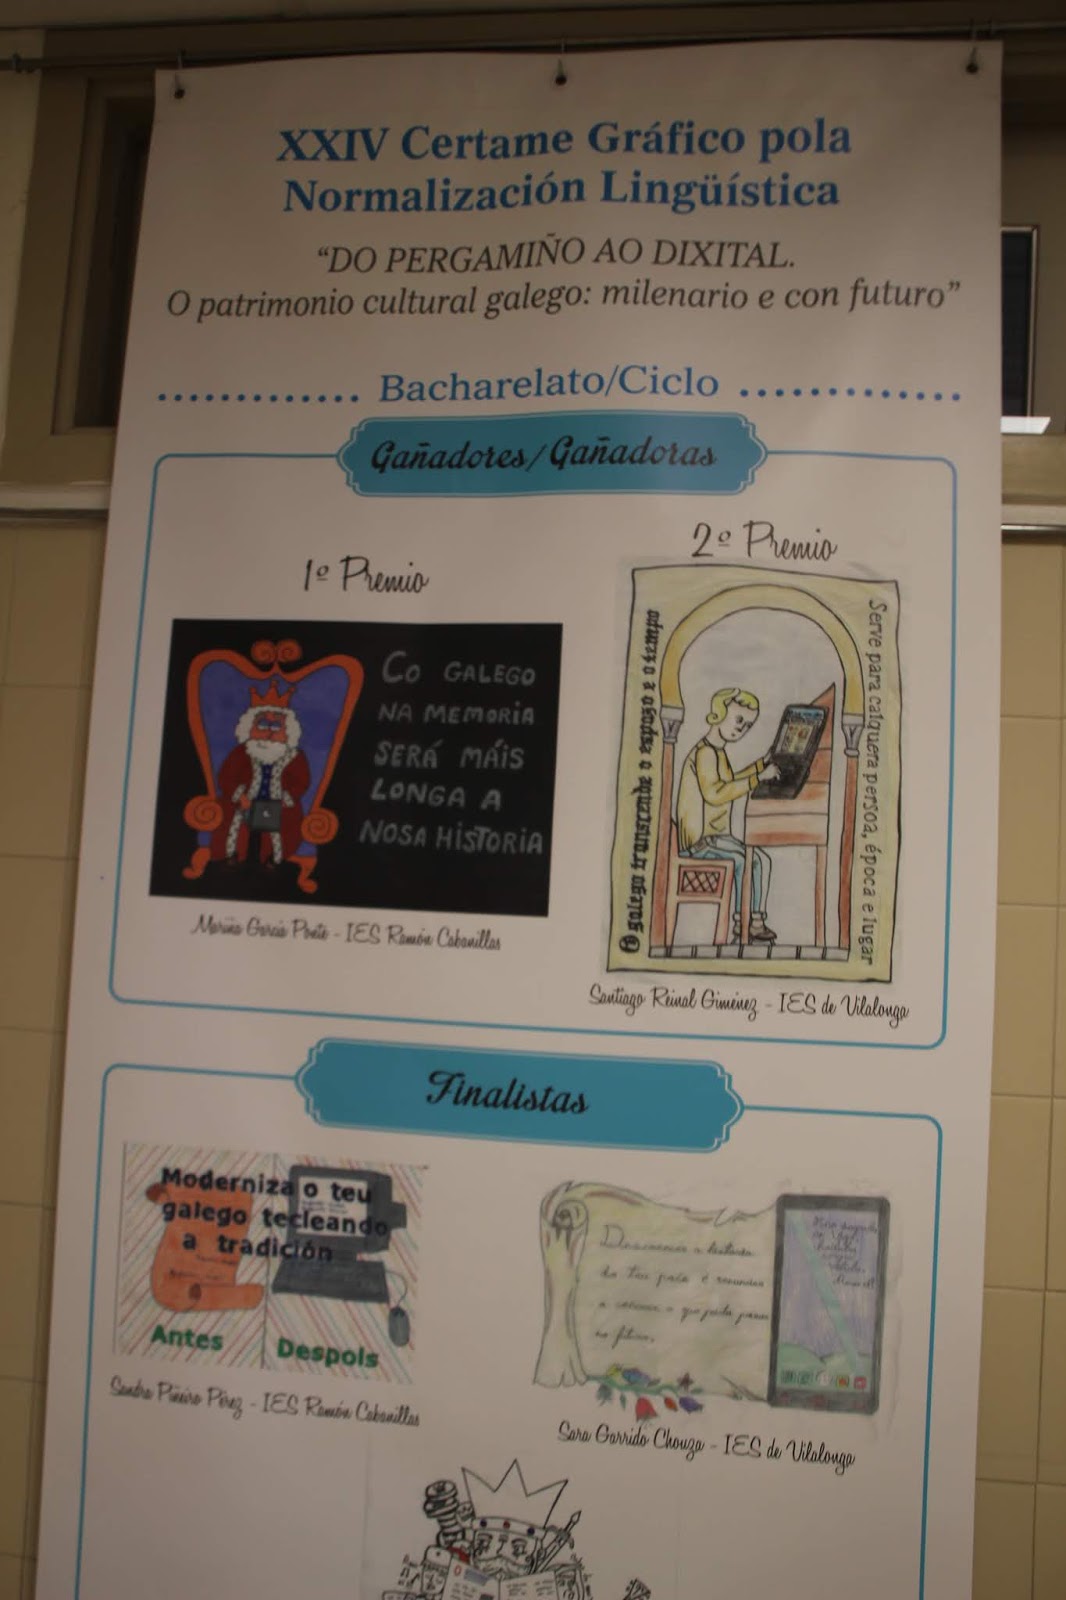 XXIV Certame Gráfico pola
Normalización Lingüística
“DO PERGAMIÑO AO DIXITAL.
O patrimonio cultural galego: milenario e con futuro”
Bacharelato/Ciclo
Gañadores/Gañadoras
1º Premio
CO GALEGO
NA MEMORIA
SERÁ MÁIS
LONGA A
NOSA HISTORIA
Mariña García Ponte - IES Ramón Cabanillas
2º Premio
Serve para calquera persoa, época e lugar
@ galego transcende o espazo e o tempo
Santiago Reinal Giménez - IES de Vilalonga
Finalistas
Moderniza o teu
galego tecleando
a tradición
Antes
Despois
Sandra Piñeiro Pérez - IES Ramón Cabanillas
a lectura
do teu país é renunciar
a
no futuro.
Sara Garrido Chouza - IES de Vilalonga